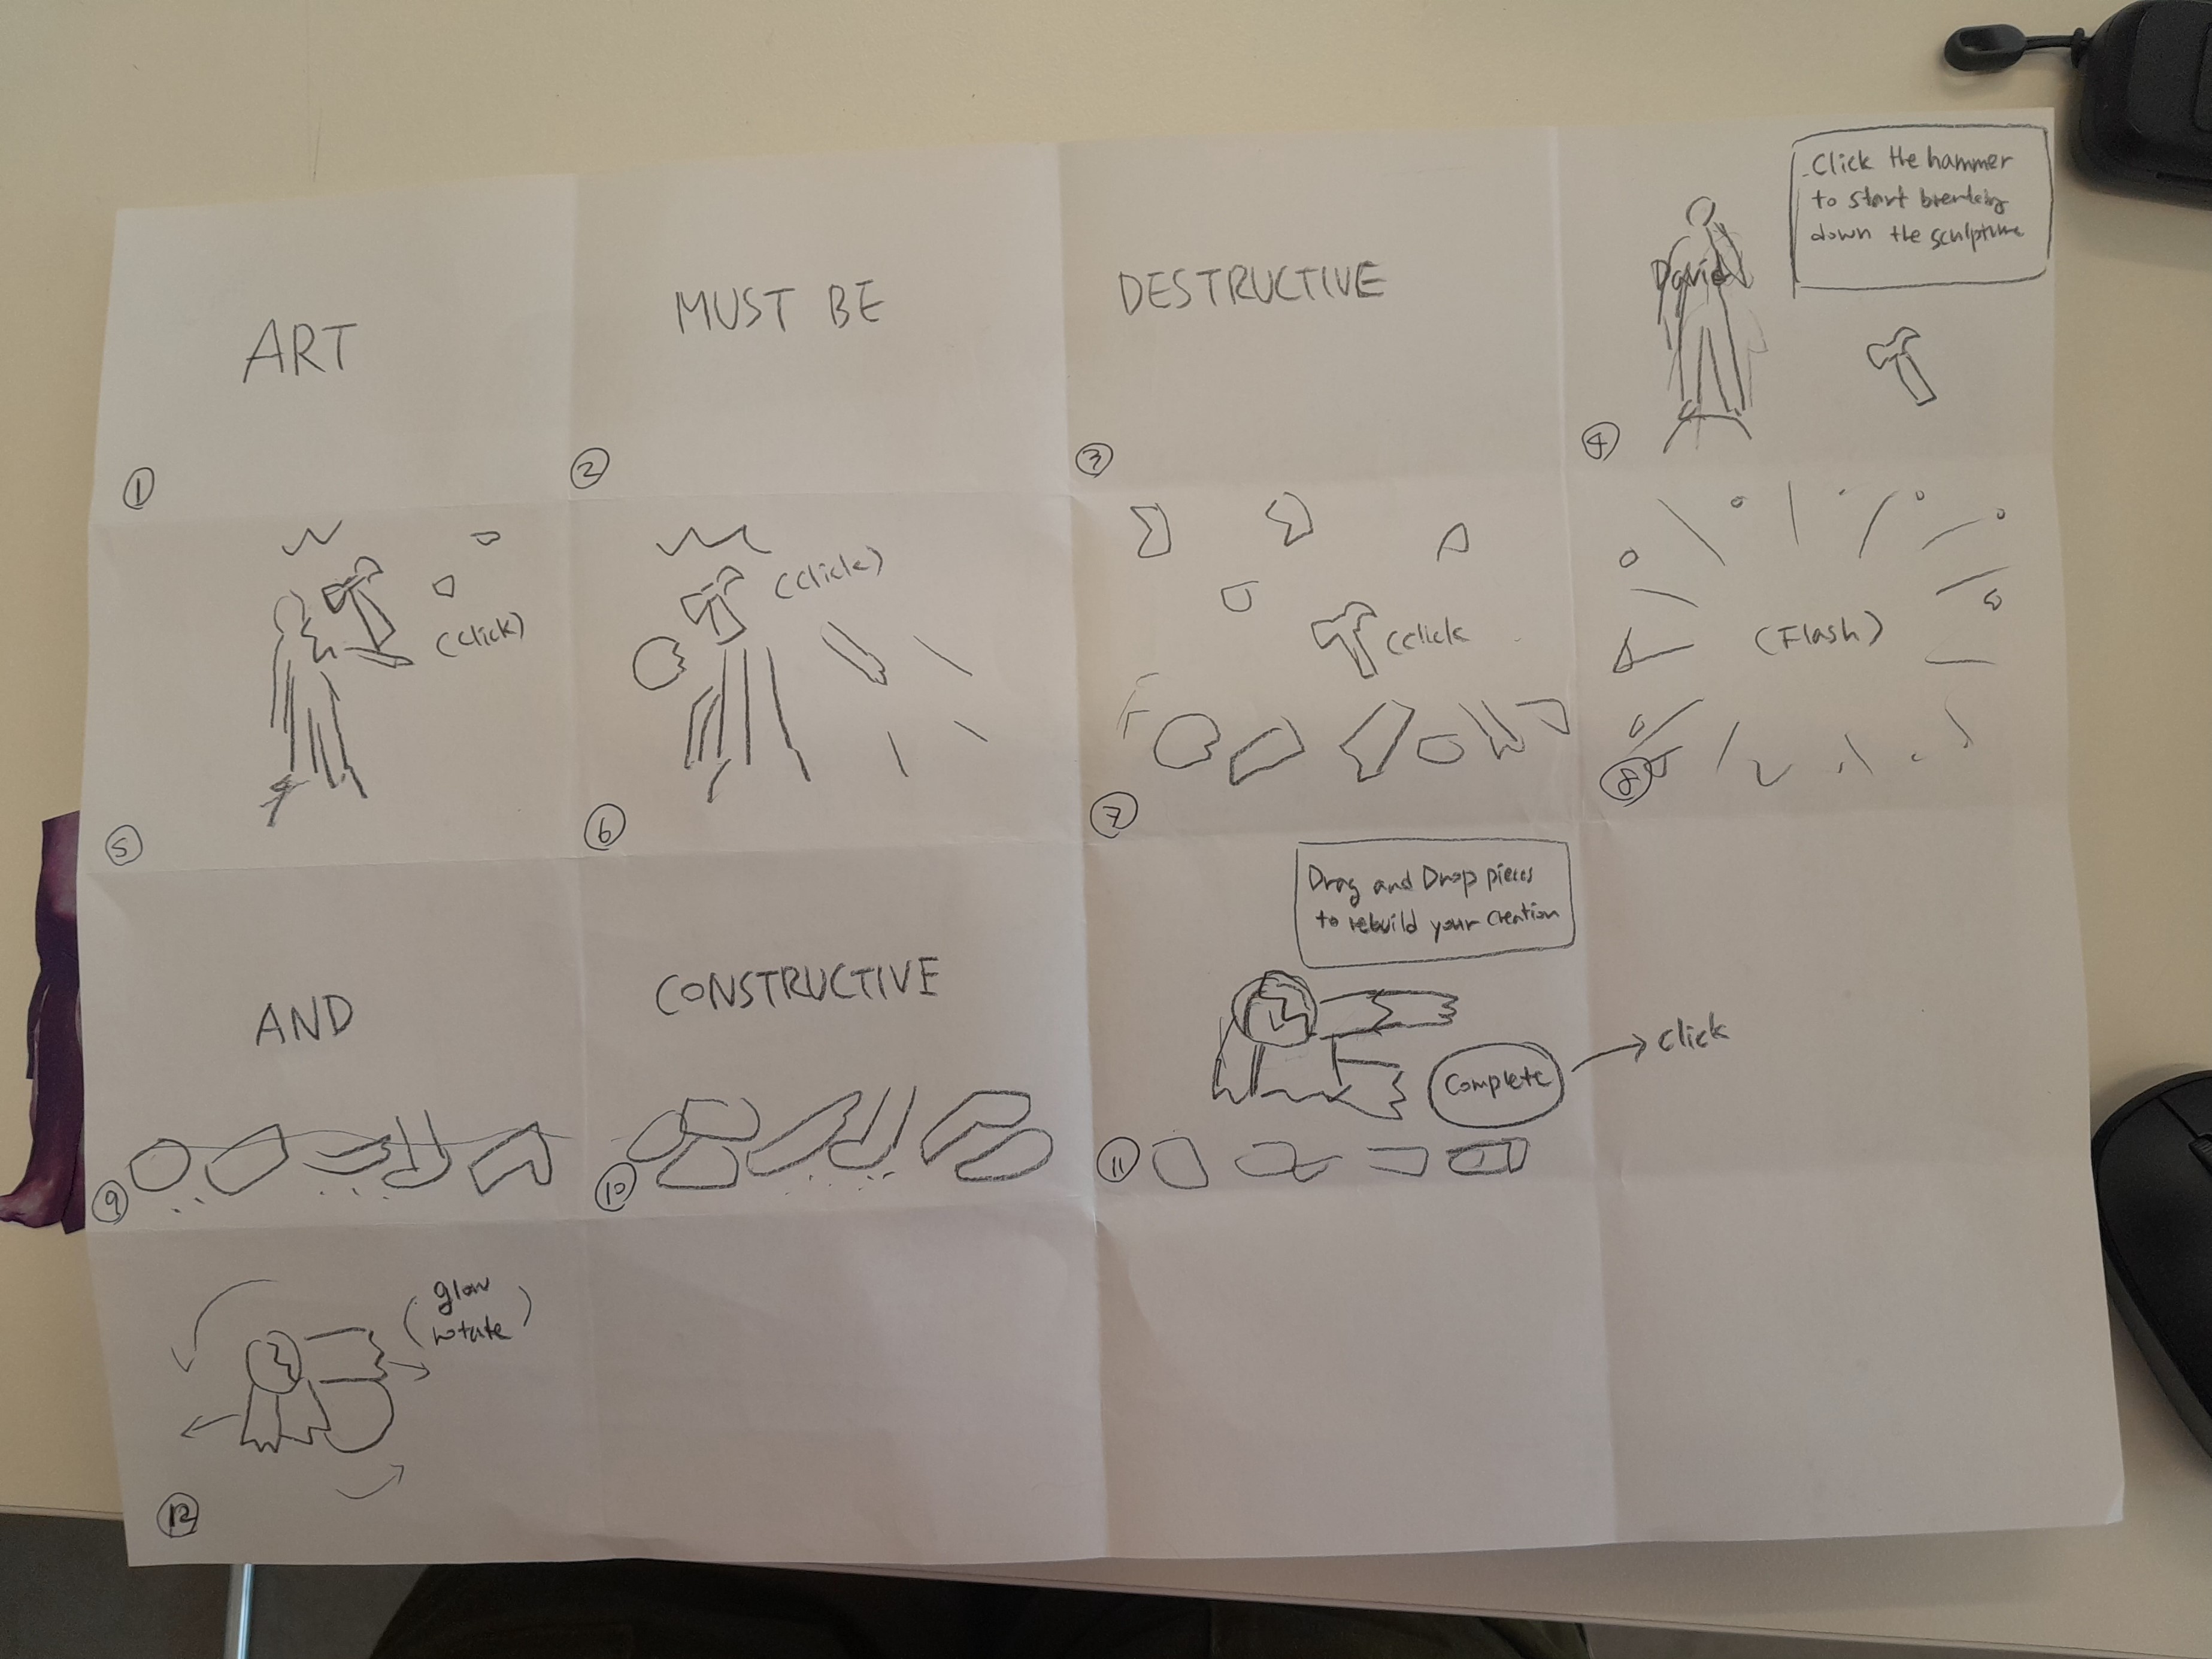 ART
①
MUST BE
②
DESTRUCTIVE
③
Click the hammer
to start breaking
down the sculpture
David
④
(click)
⑤
(click)
⑥
(click
⑦
(Flash)
⑧
AND
⑨
CONSTRUCTIVE
⑩
Drag and Drop pieces
to rebuild your creation
Complete
click
⑪
(glow
rotate)
⑫